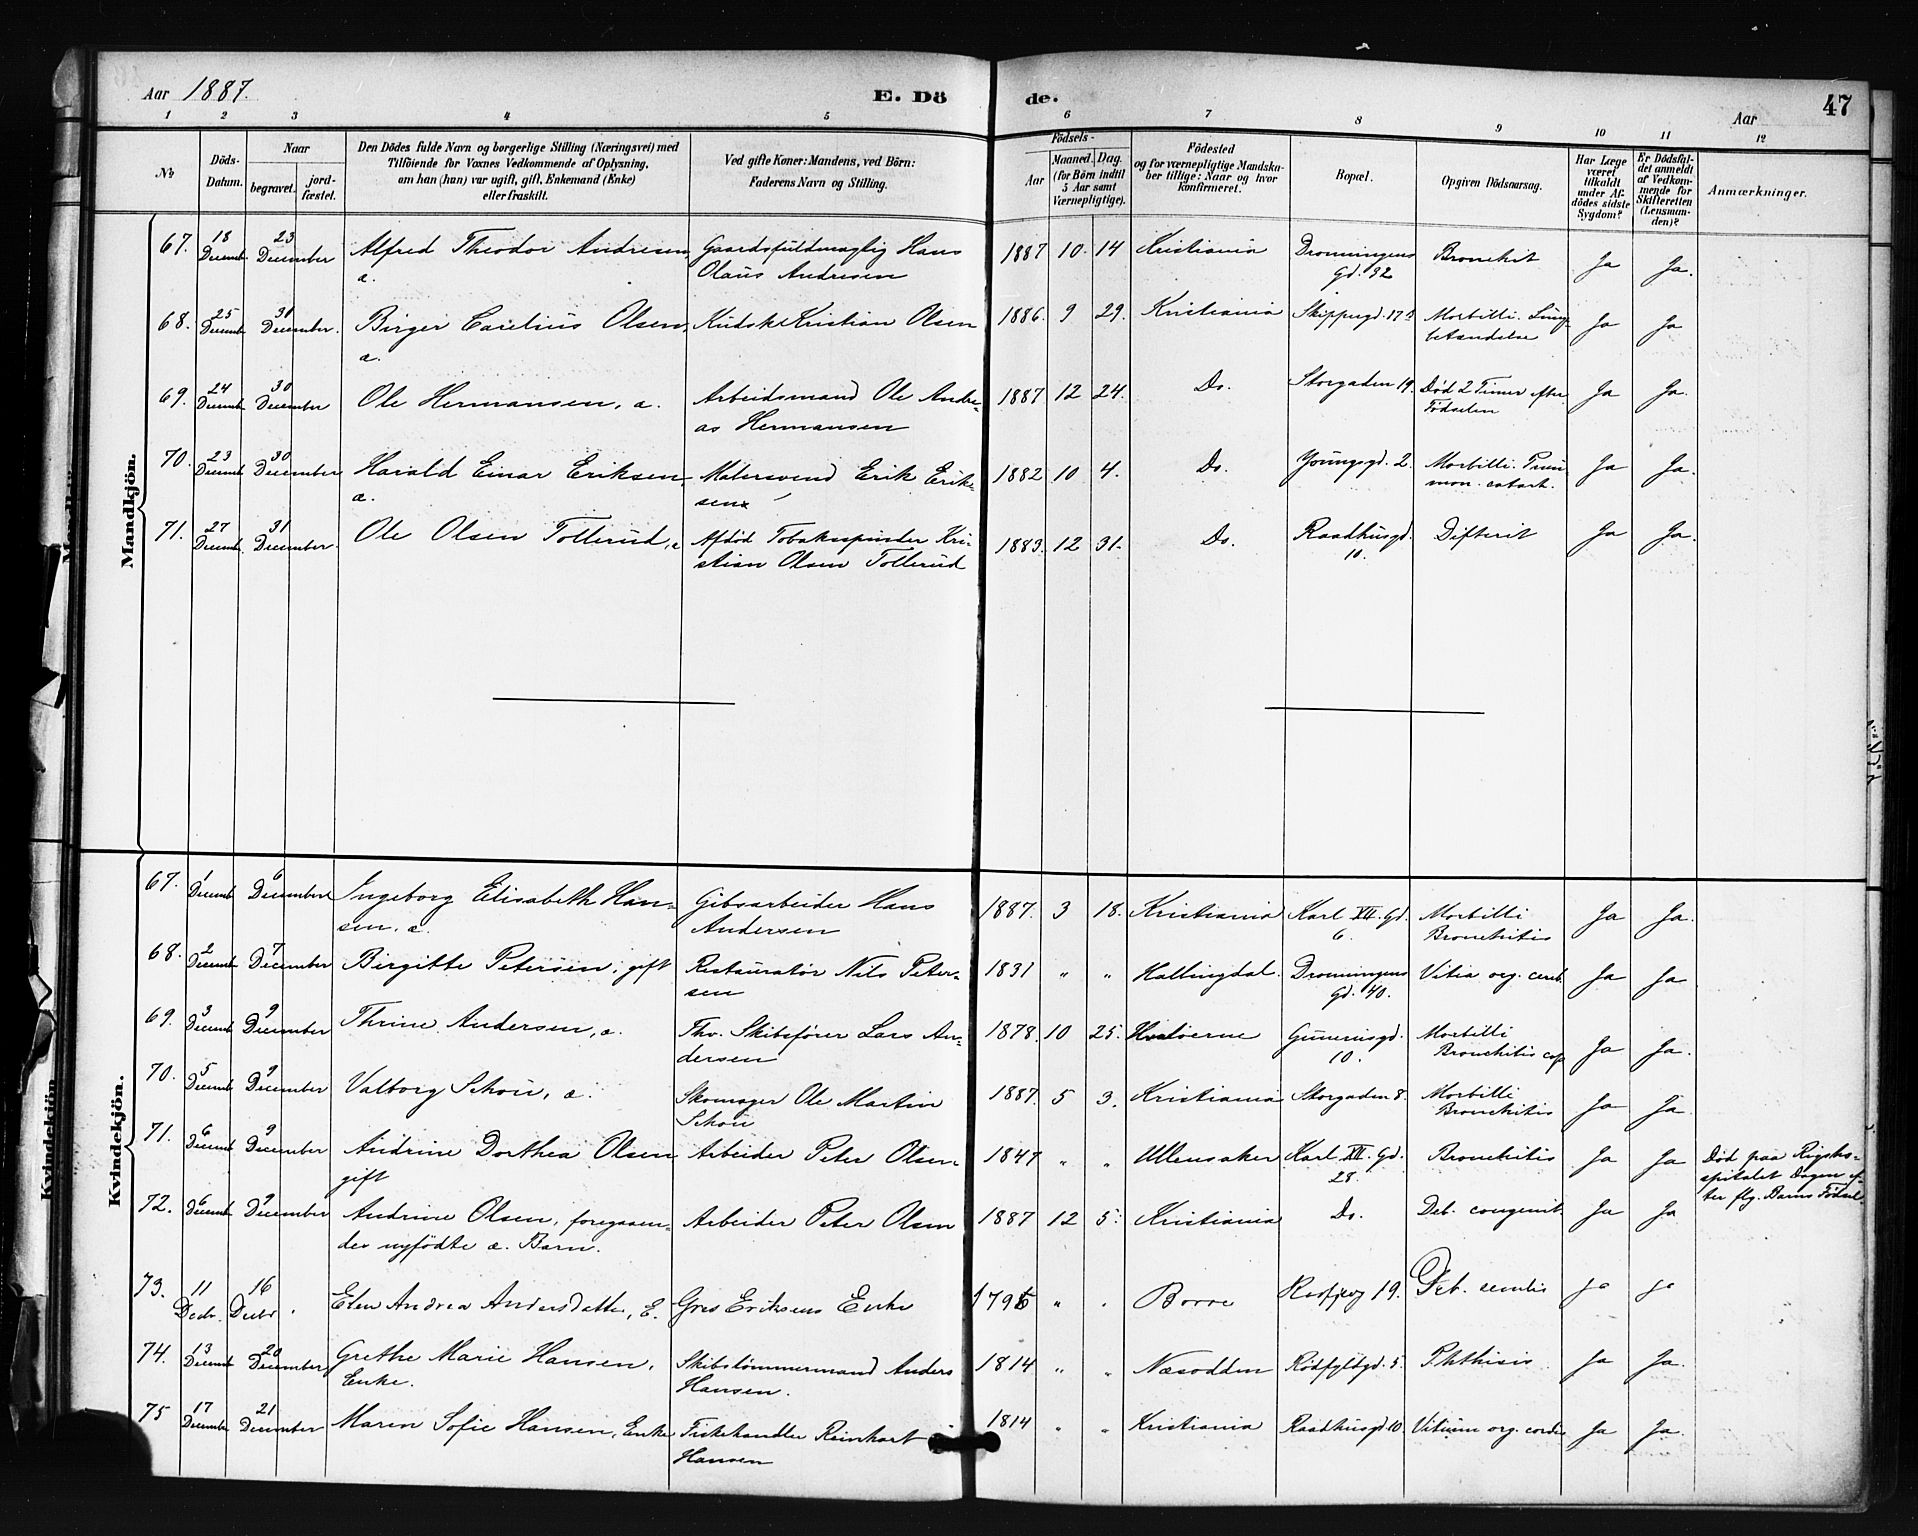 Aar 1887. E. Döde. Aar 47
1 2 3 4 5 6 7 8 9 10 11 12
№ Döds-Datum. Naar begravet. jord-fæstet. Den Dödes fulde Navn og borgerlige Stilling (Næringsvei) med Tilföiende for Voxnes Vedkommende af Oplysning, om han (hun) var ugift, gift, Enkemand (Enke) eller fraskilt. Ved gifte Koner: Mandens, ved Börn: Faderens Navn og Stilling. Födsels- Aar Maaned. Dag. (for Börn indtil 5 Aar samt Værnepligtige). Födested og for værnepligtige Mandska-ber tillige: Naar og hvor konfirmeret. Bopæl. Opgiven Dödsaarsag. Har Læge været tilkaldt under Af-dödes sidste Sygdom? Er Dödsfal-det anmeldt af Vedkom-mende for Skifteretten (Lensman-den)? Anmærkninger.
Mandkjön.
67. 18 Decemb. 23 December Alfred Theodor Andresen Gaardsfuldmægtig Hans 1887 10. 14 Kristiania Dronningens Bronchit Ja Ja.
æ. Olaus Andresen Gd. 32
68. 25 Decemb. 30 December. Birger Carelius Olsen, Kudsk Kristian Olsen 1886. 9 29. Kristiania Skippergd. 17 Morbilli. Lung- Ja Ja
æ. betændelse
69. 24 Decemb. 30 December Ole Hermansen, æ. Arbeidsmand Ole Andre- 1887 12 24. Do. Storgaden 19. Död 2 Timer efter Ja Ja.
as Hermansen Födselen
70. 23 Decemb. 30 December Harald Einar Eriksen, Malersvend Erik Erik- 1882 10 4. Do. Youngsgd. 2. Morbilli. Pneu- Ja Ja.
æ. sen mon. catarh.
71. 27 Decemb. 31 December. Ole Olsen Tollerud, æ Afdöd Tobakspinder Kri- 1883. 12 31. Do. Raadhusgd. Difterit Ja Ja.
stian Olsen Tollerud 10.
Kvindekjön.
67. 1 Decemb 6 December Ingeborg Elisabeth Han- Gibsarbeider Hans 1887. 3 18. Kristiania Karl XII. Gd. Morbilli Ja Ja.
sen. æ. Andersen 6. Bronchitis
68. 2 Decemb 7 December Birgitte Petersen, gift Restauratör Nils Peter- 1831 " " Hallingdal. Dronningens Vitia org. cereb. Ja Ja
sen Gd. 40.
69. 3 Decemb 9 December Thrine Andersen, æ. Fhv. Skibsförer Lars An- 1878. 10 25. Hvalöerne Gunerusgd. Morbilli Ja Ja.
dersen 10. Bronchitis cap
70. 5 Decemb 9 December Valborg Schou, æ. Skomager Ole Martin 1887. 5 3. Kristiania Storgaden 8. Morbilli Ja Ja
Schou Bronchitis
71. 6 Decemb 9 December Andrine Dorthea Olsen Arbeider Peter Olsen 1847 " " Ullensaker Karl XII. Gd. Bronchitis Ja Ja Död paa Rigsho-
gift 28. spitalet Dagen ef-
ter flg. Barns Födsel
72. 6 Decemb 9 December Andrine Olsen, foregaaen- Arbeider Peter Olsen 1887 12 5. Kristiania Do. Deb. congenit. Ja Ja
des nyfödte æ. Barn.
73. 11 Decbr. 16 Decbr Elen Andrea Andersdatter, E. Eriksens Enke 1795 " " Borre 19. Deb. senilis ja ja
74. 13 Decemb 20 December Grethe Marie Hansen, Skibstömmermand Anders 1814 " " Næsodden Rödfyldgd. 5. Phthisis Ja Ja.
Enke. Hansen.
75 17 Decembe 21 December Maren Sofie Hansen, Enke Fiskehandler Reinhart 1814 " " Kristiania Raadhusgd. 10. Vitium org. cordis Ja Ja.
Hansen